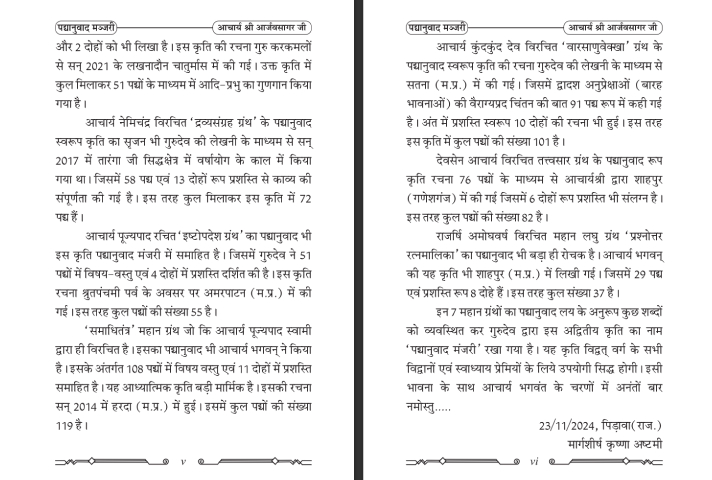 पद्यानुवाद मञ्जरी
आचार्य श्री आर्जवसागर जी
और 2 दोहों को भी लिखा है। इस कृति की रचना गुरु करकमलों
से सन् 2021 के लखनादौन चातुर्मास में की गई। उक्त कृति में
कुल मिलाकर 51 पद्यों के माध्यम में आदि-प्रभु का गुणगान किया
गया है।
आचार्य नेमिचंद्र विरचित ‘द्रव्यसंग्रह ग्रंथ’ के पद्यानुवाद
स्वरूप कृति का सृजन भी गुरुदेव की लेखनी के माध्यम से सन्
2017 में तारंगा जी सिद्धक्षेत्र में वर्षायोग के काल में किया
गया था। जिसमें 58 पद्य एवं 13 दोहों रूप प्रशस्ति से काव्य की
संपूर्णता की गई है। इस तरह कुल मिलाकर इस कृति में 72
पद्य हैं।
आचार्य पूज्यपाद रचित ‘इष्टोपदेश ग्रंथ’ का पद्यानुवाद भी
इस कृति पद्यानुवाद मंजरी में समाहित है। जिसमें गुरुदेव ने 51
पद्यों में विषय-वस्तु एवं 4 दोहों में प्रशस्ति दर्शित की है। इस कृति
रचना श्रुतपंचमी पर्व के अवसर पर अमरपाटन (म.प्र.) में की
गई। इस तरह कुल पद्यों की संख्या 55 है।
‘समाधितंत्र’ महान ग्रंथ जो कि आचार्य पूज्यपाद स्वामी
द्वारा ही विरचित है। इसका पद्यानुवाद भी आचार्य भगवन् ने किया
है। इसके अंतर्गत 108 पद्यों में विषय वस्तु एवं 11 दोहों में प्रशस्ति
समाहित है। यह आध्यात्मिक कृति बड़ी मार्मिक है। इसकी रचना
सन् 2014 में हरदा (म.प्र.) में हुई। इसमें कुल पद्यों की संख्या
119 है।
v
पद्यानुवाद मञ्जरी
आचार्य श्री आर्जवसागर जी
आचार्य कुंदकुंद देव विरचित ‘वारसाणुवेक्खा’ ग्रंथ के
पद्यानुवाद स्वरूप कृति की रचना गुरुदेव की लेखनी के माध्यम से
सतना (म.प्र.) में की गई। जिसमें द्वादश अनुप्रेक्षाओं (बारह
भावनाओं) की वैराग्यप्रद चिंतन की बात 91 पद्य रूप में कही गई
है। अंत में प्रशस्ति स्वरूप 10 दोहों की रचना भी हुई। इस तरह
इस कृति में कुल पद्यों की संख्या 101 है।
देवसेन आचार्य विरचित तत्त्वसार ग्रंथ के पद्यानुवाद रूप
कृति रचना 76 पद्यों के माध्यम से आचार्यश्री द्वारा शाहपुर
(गणेशगंज) में की गई जिसमें 6 दोहों रूप प्रशस्ति भी संलग्न है।
इस तरह कुल पद्यों की संख्या 82 है।
राजर्षि अमोघवर्ष विरचित महान लघु ग्रंथ ‘प्रश्नोत्तर
रत्नमालिका’ का पद्यानुवाद भी बड़ा ही रोचक है। आचार्य भगवन्
की यह कृति भी शाहपुर (म.प्र.) में लिखी गई। जिसमें 29 पद्य
एवं प्रशस्ति रूप 8 दोहे हैं। इस तरह कुल संख्या 37 है।
इन 7 महान ग्रंथों का पद्यानुवाद लय के अनुरूप कुछ शब्दों
को व्यवस्थित कर गुरुदेव द्वारा इस अद्वितीय कृति का नाम
‘पद्यानुवाद मंजरी’ रखा गया है। यह कृति विद्वत् वर्ग के सभी
विद्वानों एवं स्वाध्याय प्रेमियों के लिये उपयोगी सिद्ध होगी। इसी
भावना के साथ आचार्य भगवंत के चरणों में अनंतों बार
नमोस्तु.....
23/11/2024, पिड़ावा(राज.)
मार्गशीर्ष कृष्णा अष्टमी
vi